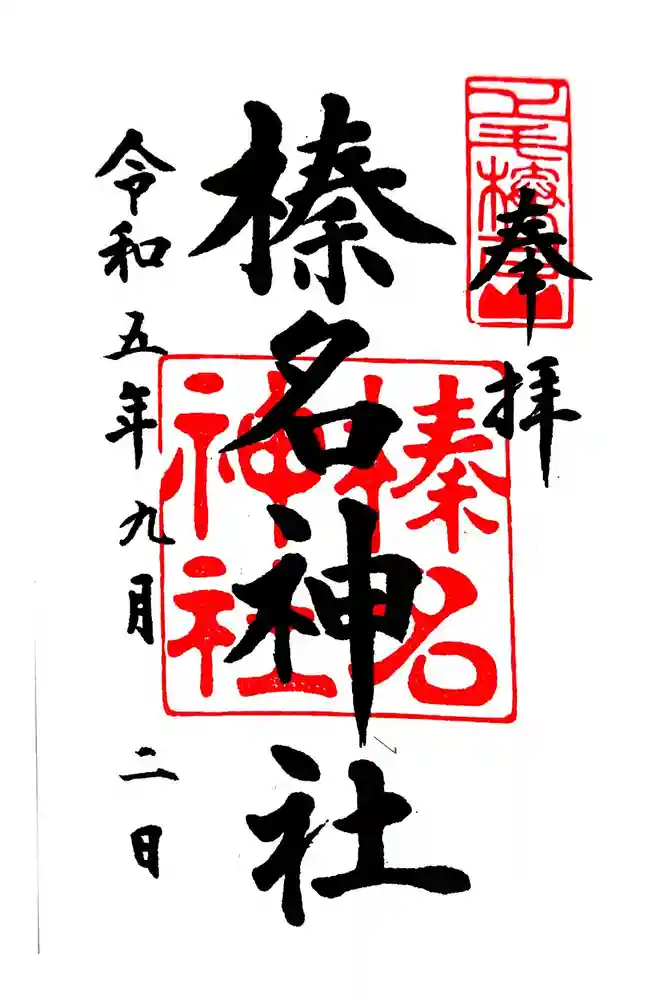 奉拝
榛名神社
榛名
神社
令和五年九月二日